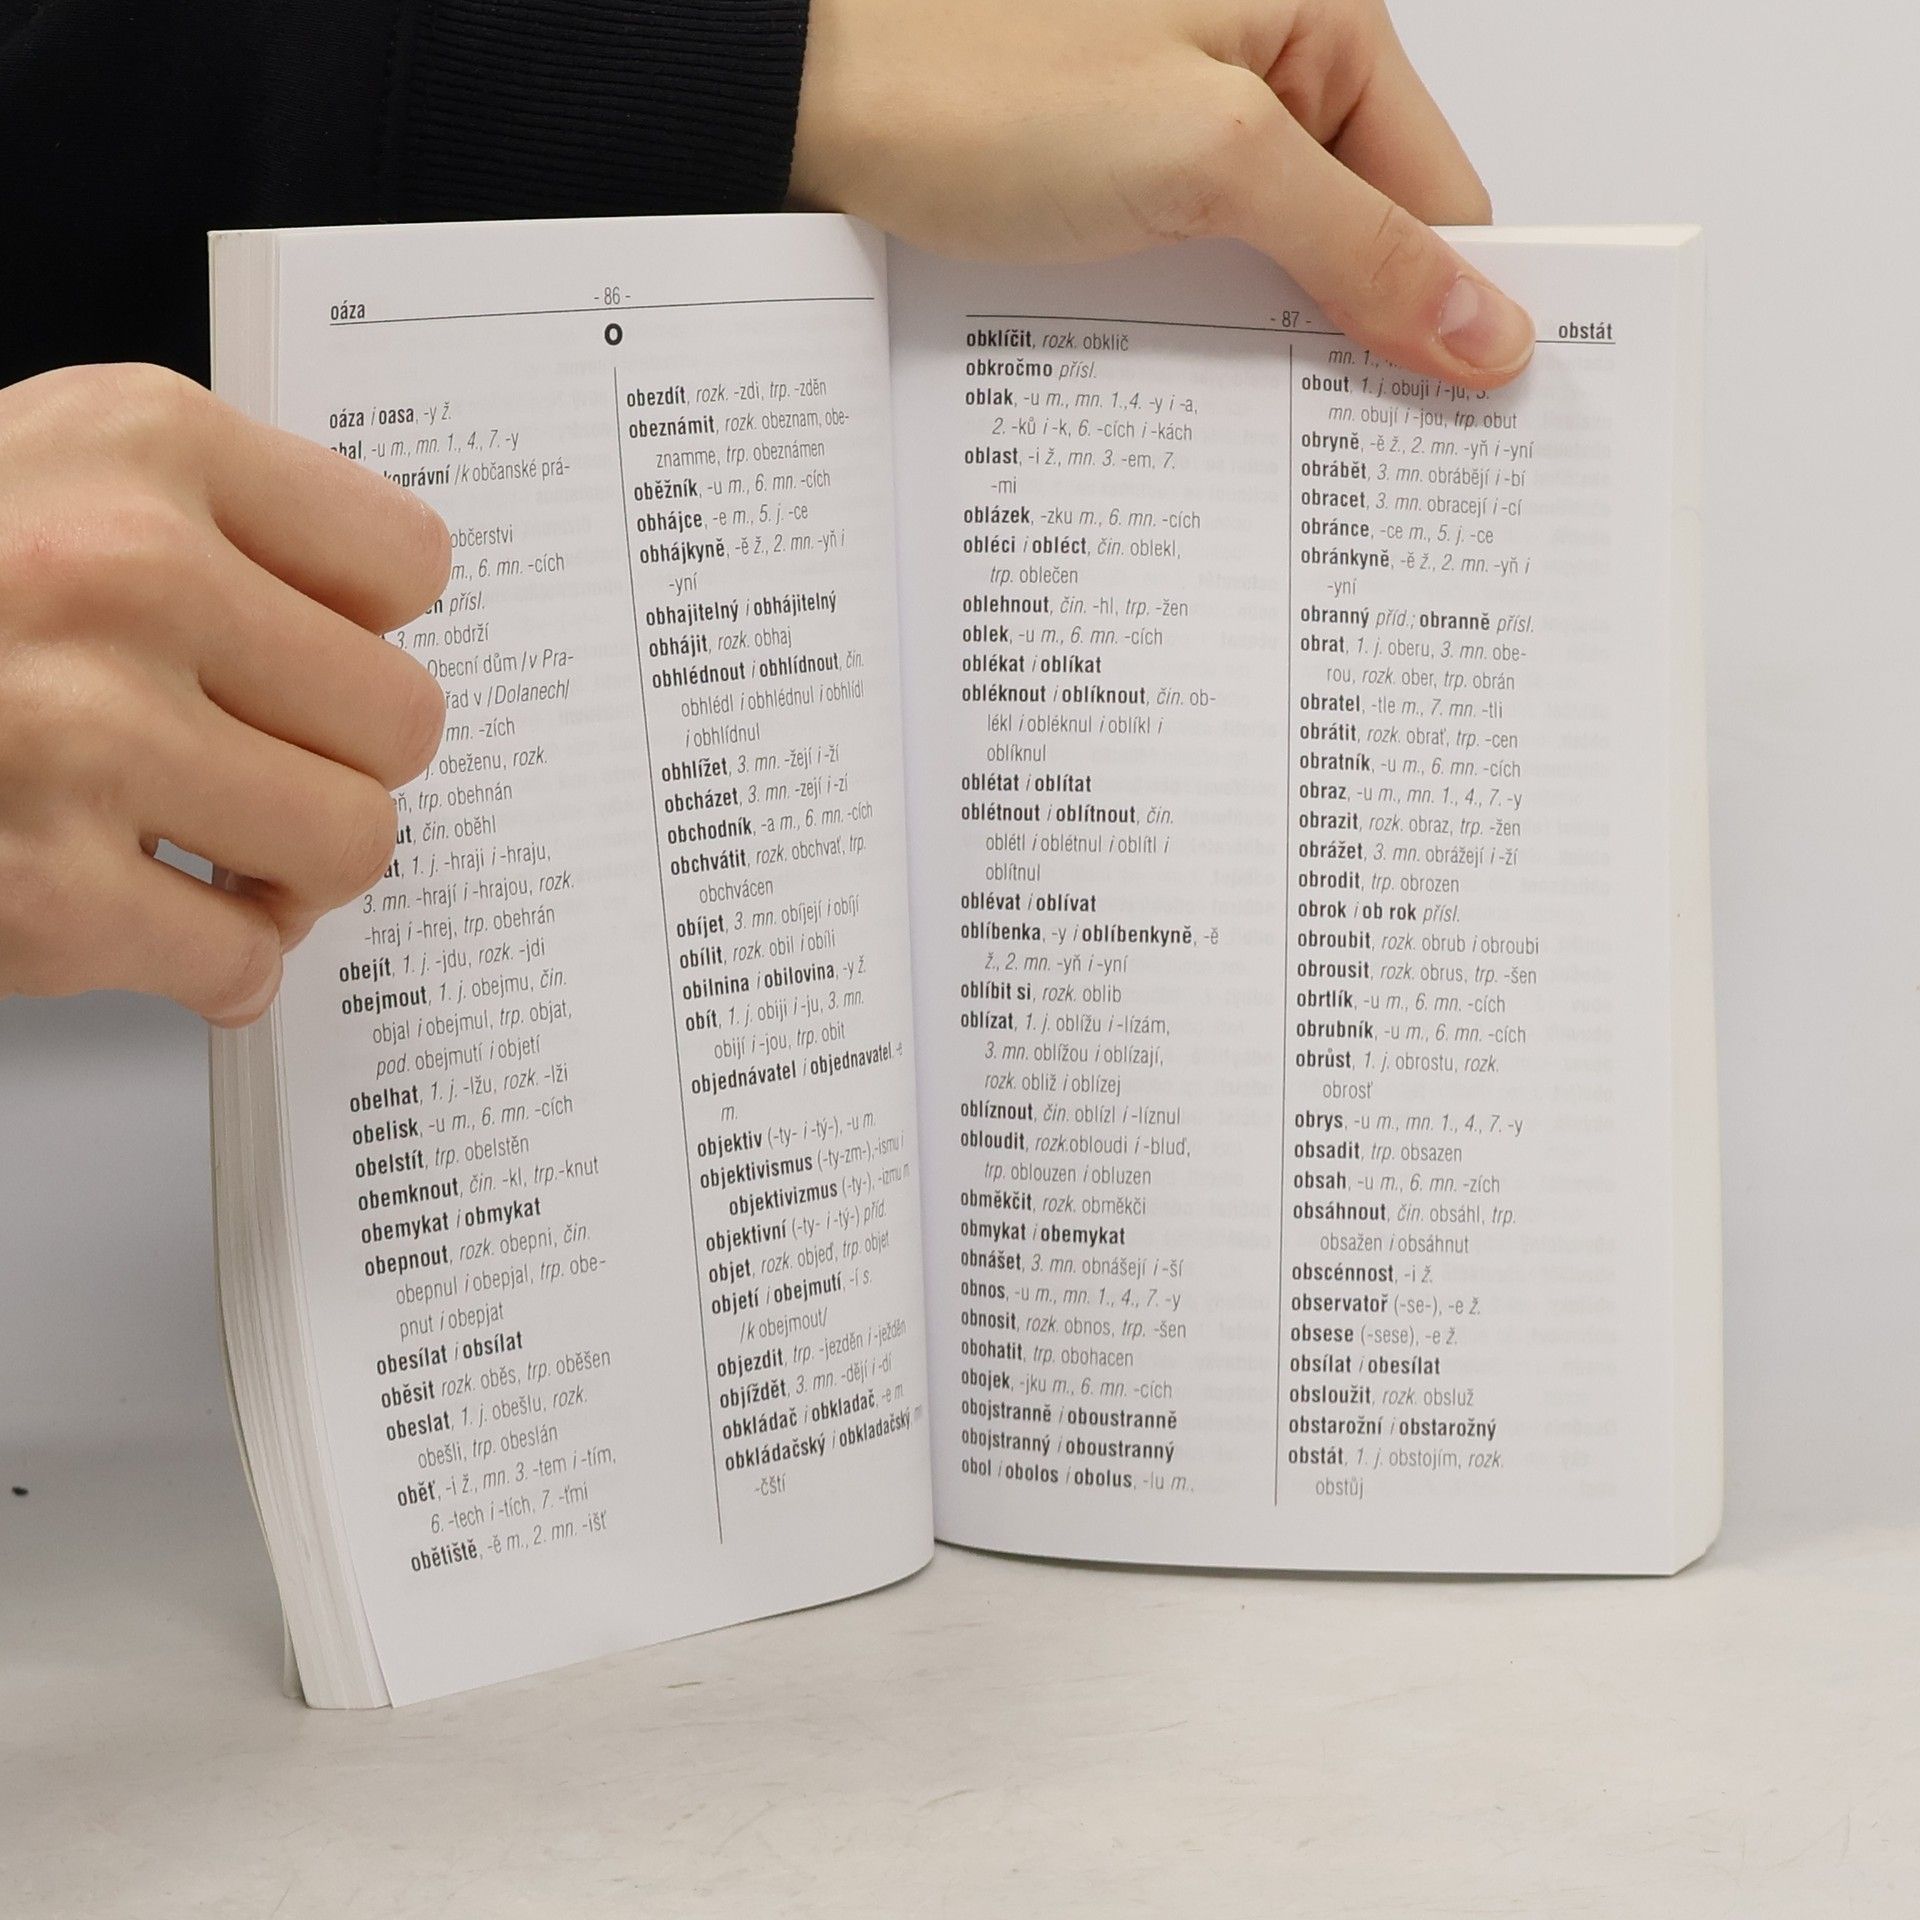 oáza
- 86 -
O
oáza i oasa, -y ž.
-u m., mn. 1., 4., 7. -y
/k občanské prá-
občerstvi
m., 6. mn. -cích
přísl.
3. mn. obdrží
Obecní dům /v Pra-
v /Dolanech/
mn. -zích
obeženu, rozk.
trp. obehnán
čin. oběhl
1. j. -hraji i -hraju,
3. mn. -hrají i -hrajou, rozk.
-hraj i -hrej, trp. obehrán
obejít, 1. j. -jdu, rozk. -jdi
obejmout, 1. j. obejmu, čin.
objal i obejmul, trp. objat,
pod. obejmutí i objetí
obelhat, 1. j. -lžu, rozk. -lži
obelisk, -u m., 6. mn. -cích
obelstít, trp. obelstěn
obemknout, čin. -kl, trp.-knut
obemykat i obmykat
obepnout, rozk. obepni, čin.
obepnul i obepjal, trp. obe-
pnut i obepjat
obesílat i obsílat
oběsit rozk. oběs, trp. oběšen
obeslat, 1. j. obešlu, rozk.
obešli, trp. obeslán
oběť, -i ž., mn. 3. -tem i -tím,
6. -tech i -tích, 7. -ťmi
obětiště, -ě m., 2. mn. -išť
obezdít, rozk. -zdi, trp. -zděn
obeznámit, rozk. obeznam, obe-
znamme, trp. obeznámen
oběžník, -u m., 6. mn. -cích
obhájce, -e m., 5. j. -ce
obhájkyně, -ě ž., 2. mn. -yň i
-yní
obhajitelný i obhájitelný
obhájit, rozk. obhaj
obhlédnout i obhlídnout, čin.
obhlédl i obhlédnul i obhlídl
i obhlídnul
obhlížet, 3. mn. -žejí i -ží
obcházet, 3. mn. -zejí i -zí
obchodník, -a m., 6. mn. -cích
obchvátit, rozk. obchvať, trp.
obchvácen
obíjet, 3. mn. obíjejí i obíjí
obílit, rozk. obil i obíli
obilnina i obilovina, -y ž.
obít, 1. j. obiji i -ju, 3. mn.
obijí i -jou, trp. obit
objednávatel i objednavatel, -e
m.
objektiv (-ty- i -tý-), -u m.
objektivismus (-ty-zm-),-ismu i
objektivizmus (-ty-), -izmu m.
objektivní (-ty- i -tý-) příd.
objet, rozk. objeď, trp. objet
objetí i obejmutí, -í s.
/k obejmout/
objezdit, trp. -jezděn i -ježděn
objíždět, 3. mn. -dějí i -dí
obkládač i obkladač, -e m.
obkládačský i obkladačský,
-čští
- 87 -
obstát
obklíčit, rozk. obklič
obkročmo přísl.
oblak, -u m., mn. 1.,4. -y i -a,
2. -ků i -k, 6. -cích i -kách
oblast, -i ž., mn. 3. -em, 7.
-mi
oblázek, -zku m., 6. mn. -cích
obléci i obléct, čin. oblekl,
trp. oblečen
oblehnout, čin. -hl, trp. -žen
oblek, -u m., 6. mn. -cích
oblékat i oblíkat
obléknout i oblíknout, čin. ob-
lékl i obléknul i oblíkl i
oblíknul
oblétat i oblítat
oblétnout i oblítnout, čin.
oblétl i oblétnul i oblítl i
oblítnul
oblévat i oblívat
oblíbenka, -y i oblíbenkyně, -ě
ž., 2. mn. -yň i -yní
oblíbit si, rozk. oblib
oblízat, 1. j. oblížu i -lízám,
3. mn. oblížou i oblízají,
rozk. obliž i oblízej
oblíznout, čin. oblízl i -líznul
obloudit, rozk.obloudi i -bluď,
trp. oblouzen i obluzen
obměkčit, rozk. obměkči
obmykat i obemykat
obnášet, 3. mn. obnášejí i -ší
obnos, -u m., mn. 1., 4., 7. -y
obnosit, rozk. obnos, trp. -šen
obohatit, trp. obohacen
obojek, -jku m., 6. mn. -cích
obojstranně i oboustranně
obojstranný i oboustranný
obol i obolos i obolus, -lu m.,
mn. 1.,
obout, 1. j. obuji i -ju, 3.
mn. obují i -jou, trp. obut
obryně, -ě ž., 2. mn. -yň i -yní
obrábět, 3. mn. obrábějí i -bí
obracet, 3. mn. obracejí i -cí
obránce, -ce m., 5. j. -ce
obránkyně, -ě ž., 2. mn. -yň i
-yní
obranný příd.; obranně přísl.
obrat, 1. j. oberu, 3. mn. obe-
rou, rozk. ober, trp. obrán
obratel, -tle m., 7. mn. -tli
obrátit, rozk. obrať, trp. -cen
obratník, -u m., 6. mn. -cích
obraz, -u m., mn. 1., 4., 7. -y
obrazit, rozk. obraz, trp. -žen
obrážet, 3. mn. obrážejí i -ží
obrodit, trp. obrozen
obrok i ob rok přísl.
obroubit, rozk. obrub i obroubi
obrousit, rozk. obrus, trp. -šen
obrtlík, -u m., 6. mn. -cích
obrubník, -u m., 6. mn. -cích
obrůst, 1. j. obrostu, rozk.
obrosť
obrys, -u m., mn. 1., 4., 7. -y
obsadit, trp. obsazen
obsah, -u m., 6. mn. -zích
obsáhnout, čin. obsáhl, trp.
obsažen i obsáhnut
obscénnost, -i ž.
observatoř (-se-), -e ž.
obsese (-sese), -e ž.
obsílat i obesílat
obsloužit, rozk. obsluž
obstarožní i obstarožný
obstát, 1. j. obstojím, rozk.
obstůj